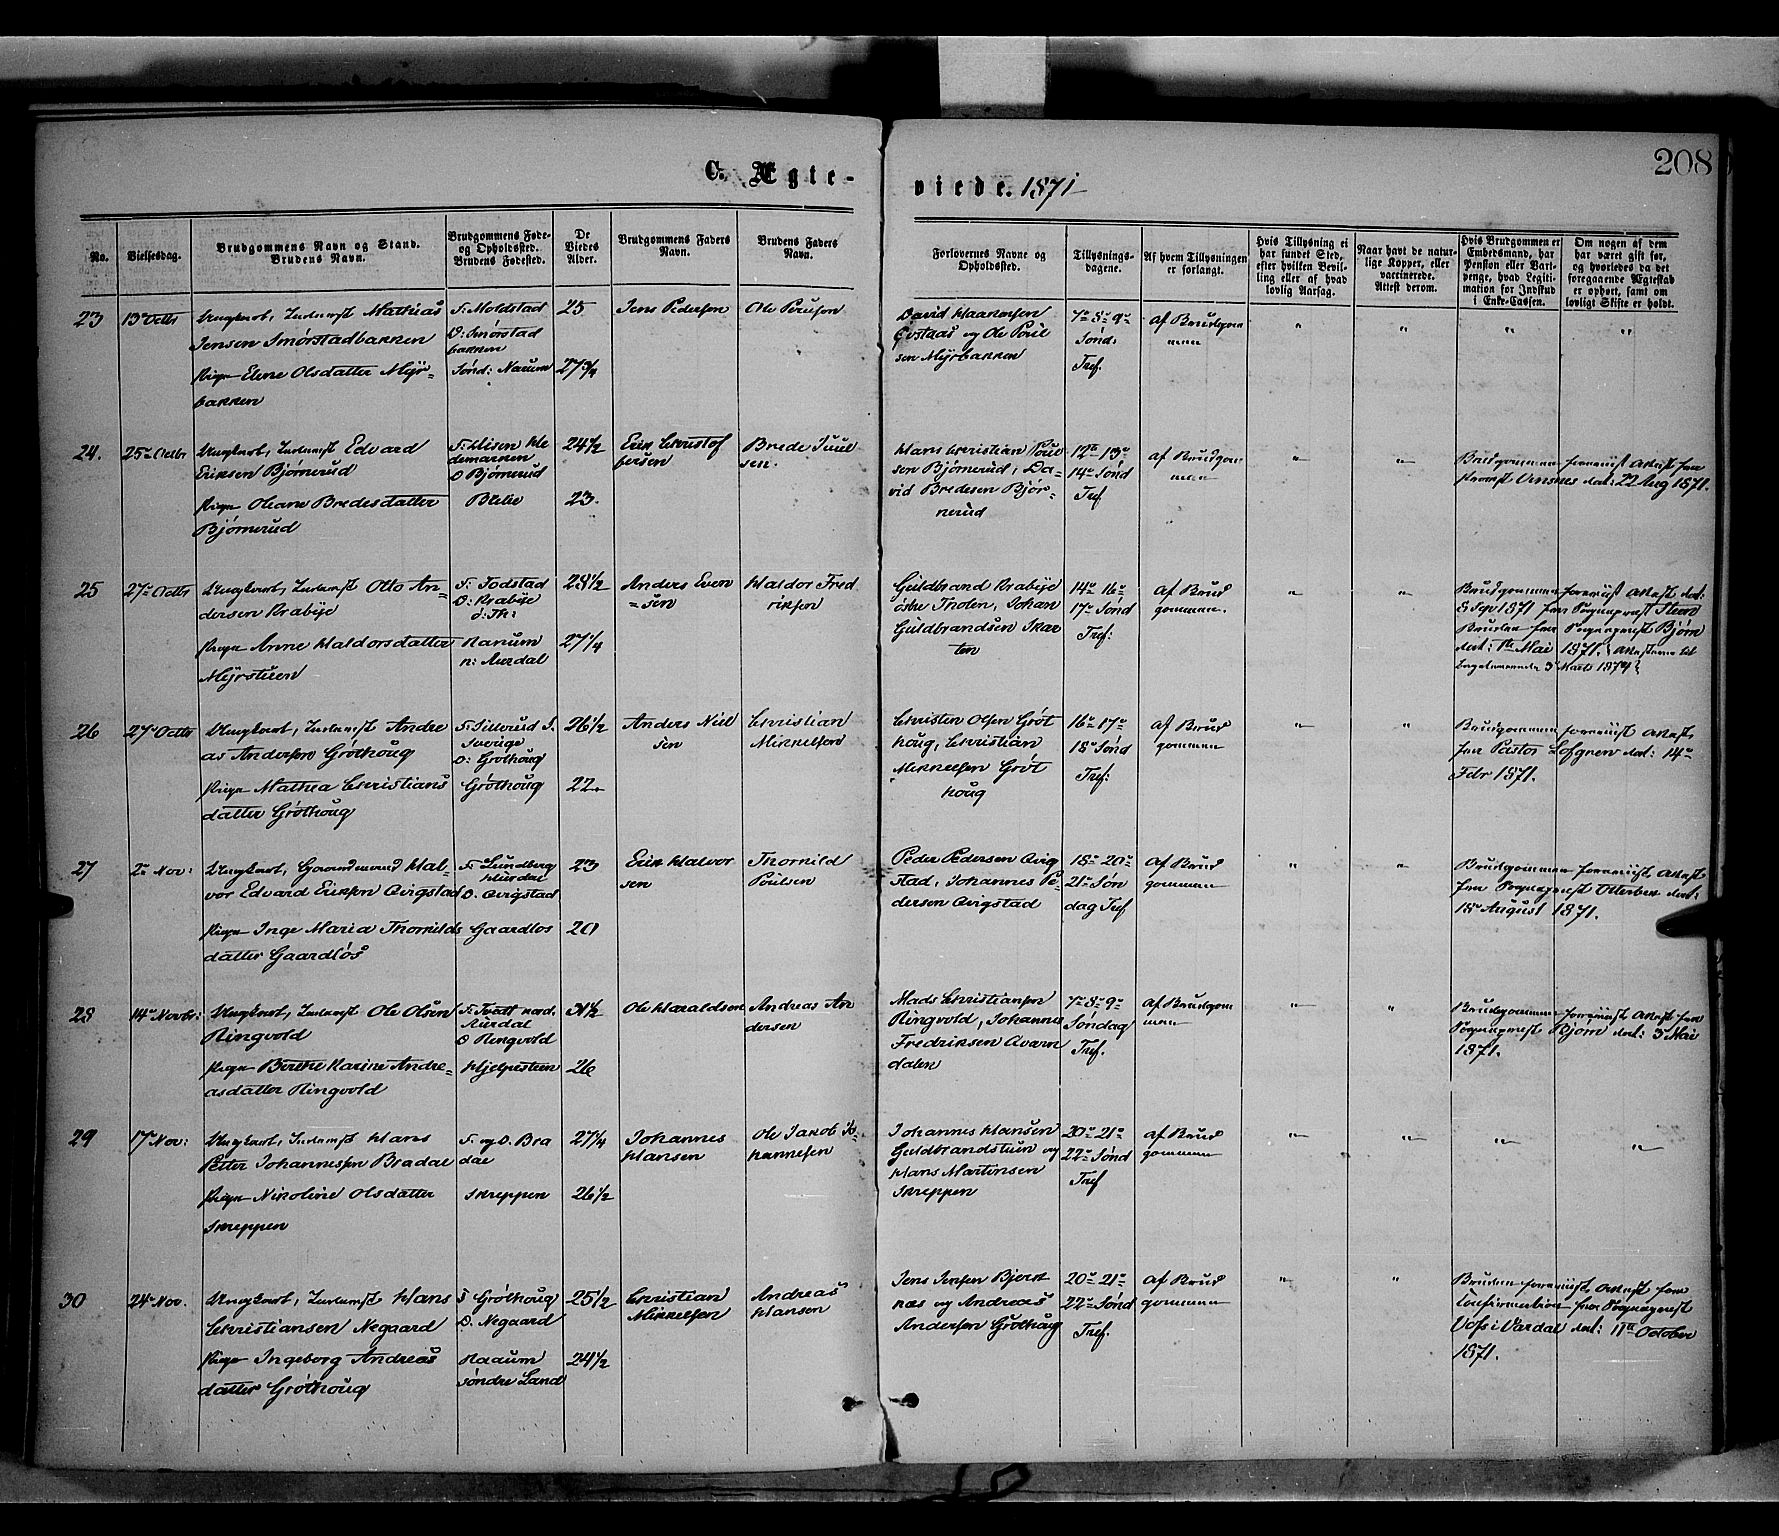 208
C. Ægte-
viede. 1871
No.
Vielsesdag.
Brudgommens Navn og Stand.
Brudens Navn.
Brudgommens Føde-
og Opholdssted.
Brudens Fødested.
De
Viedes
Alder.
Brudgommens Faders
Navn.
Brudens Faders
Navn.
Forlovernes Navne og
Opholdssted.
Tillysnings-
dagene.
Af hvem Tillysningen
er forlangt.
Hvis Tillysning ei
har fundet Sted,
efter hvilken Bevil-
ling eller af hvad
lovlig Aarsag.
Naar havt de natur-
lige Kopper, eller
vaccinerede.
Attest derom.
Hvis Brudgommen er
Embedsmand, har
Pension eller Vart-
penge, hvad Legiti-
mation for Indskud
i Enke-Cassen.
Om nogen af dem
har været gift før,
og hvorledes da det
foregaaende Ægteskab
er ophørt, samt om
lovligt Skifte er holdt.
23
13 Octbr
Ungkarl, Inderst Mathias
Jensen Smørstadbakken
Pige Elene Olsdatter Myr-
bakken
F: Moldstad
O: Smørstad
bakken
Sønd: Narum
25
27 3/4
Jens Pedersen
Ole Poulsen
David Haakensen
Evstaas og Ole Poul
sen Myrbakken
7de 8de 9de
Sønd:
Tref.
Af Brudgom
men
" " " "
24.
25de Octbr
Ungkarl, Inderst Edvard
Eriksen Bjørnerud
Pige Oleane Bredesdatter
Bjørnerud
F: Disen He
demarken
O Bjørnerud
Blilie
24 1/2
23.
Erik Christof
fersen
Brede Juul
sen.
Hans Christian Poul
sen Bjørnerud, Da-
vid Bredesen Bjør-
nerud
12te 13de
14de Sønd
Tref
af Brudgom
men
" "
Brudgommen foreviist Attest fra
Provst Omsnes dat: 22 Aug 1871.
25
27de Octbr
Ungkarl, Inderst Otto An-
dersen Krabye
Pige Anne Haldorsdatter
Myrstuen
F: Fodstad
O: Krabye
ø: Th:
Ranum
n: Aurdal
28 1/2
27 1/4
Anders Even
=sen
Haldor Fred
riksen
Guldbrand Krabye
østre Thoten, Johan
Guldbrandsen Skar
ten
14de 16de
17de Sønd
Tref:
Af Brud
gommen.
" "
Brudgommen foreviist Attest dat:
8 Sep 1871 fra Sognepræst Steen
Bruden fra Sognepræst Bjørn
dat: 1te Mai 1871.
3 Marts 1874
26
27de Octbr
Ungkarl, Inderst Andre
as Andersen Grøthoug
Pige Mathea Christians
datter Grøthoug
F: Sillerud S.
Sverige
O: Grøthoug
Grøthoug
26 1/2
22.
Anders Niel
sen
Christian
Mikkelsen
Christen Olsen Grøt
houg, Christian
Mikkelsen Grøt
houg
16de 17de
18de Sønd
Tref:
af Brud
gommen
" "
Brudgommen foreviist Attest
fra Pastor Lofgren dat: 14de
Febr 1871.
27
2de Nov:
Ungkarl, Gaardmand Hal-
vor Edvard Eriksen Qvigstad
Pige Inge Maria Thorkilds
datter Gaardløs
F: Lundberg
Hurdal
O. Qvigstad
Gaardløs
23
20
Erik Halvor
sen
Thorkild
Poulsen
Peder Pedersen Qvig
stad, Johannes Pe-
dersen Qvigstad
18de 20de
21de Søn
dag Tref
Af Brud
gommen
" "
Brudgommen foreviist Attest
fra Sognepræst Otterbeck dat:
18de August 1871.
28
14de Novbr:
Ungkarl, Inderst Ole Olsen
Ringvold
Pige Berthe Karine Andre-
asdatter Ringvold
F: Tvedt nord.
Aurdal
O Ringvold
Hjelpestuen
31 1/2
26
Ole Haraldsen
Andreas An
dersen
Mads Christiansen
Ringvold, Johannes
Fredriksen Qvarn
dalen
7de 8de 9de
Søndag
Tref.
Af Brudgom
men
" "
Brudgommen foreviist Attest fra
Sognepræst Bjørn dat: 3 Mai
1871.
29
17de Nov:
Ungkarl, Inderst Hans
Petter Johannessen Bradal
Pige Nikoline Olsdatter
Skreppen
F: og O. Bra
dal
Skreppen
27 1/4
26 1/2
Johannes
Hansen
Ole Jakob Jo-
hannesen
Johannes Hansen
Guldbrandstuen og
Hans Martinsen
Skreppen
20de 21de
22de Sønd
Tref
af Brud
gommen
" " " "
30
24de Nov.
Ungkarl, Inderst Hans
Christiansen Negaard
Pige Ingeborg Andreas
datter Grøthoug
F Grøthoug
O. Negaard
Raaum
søndre Land
25 1/2
24 1/2
Christian
Mikkelsen
Andreas
Hansen
Jens Jensen Bjerk
nes og Andreas
Andersen Grøthoug
20de 21de
22de Sønd
Tref.
Af Brud
gommen
" "
Bruden foreviist Attest for
Confirmation fra Sognepræst
Voss i Vardal dat: 11te October
1871.